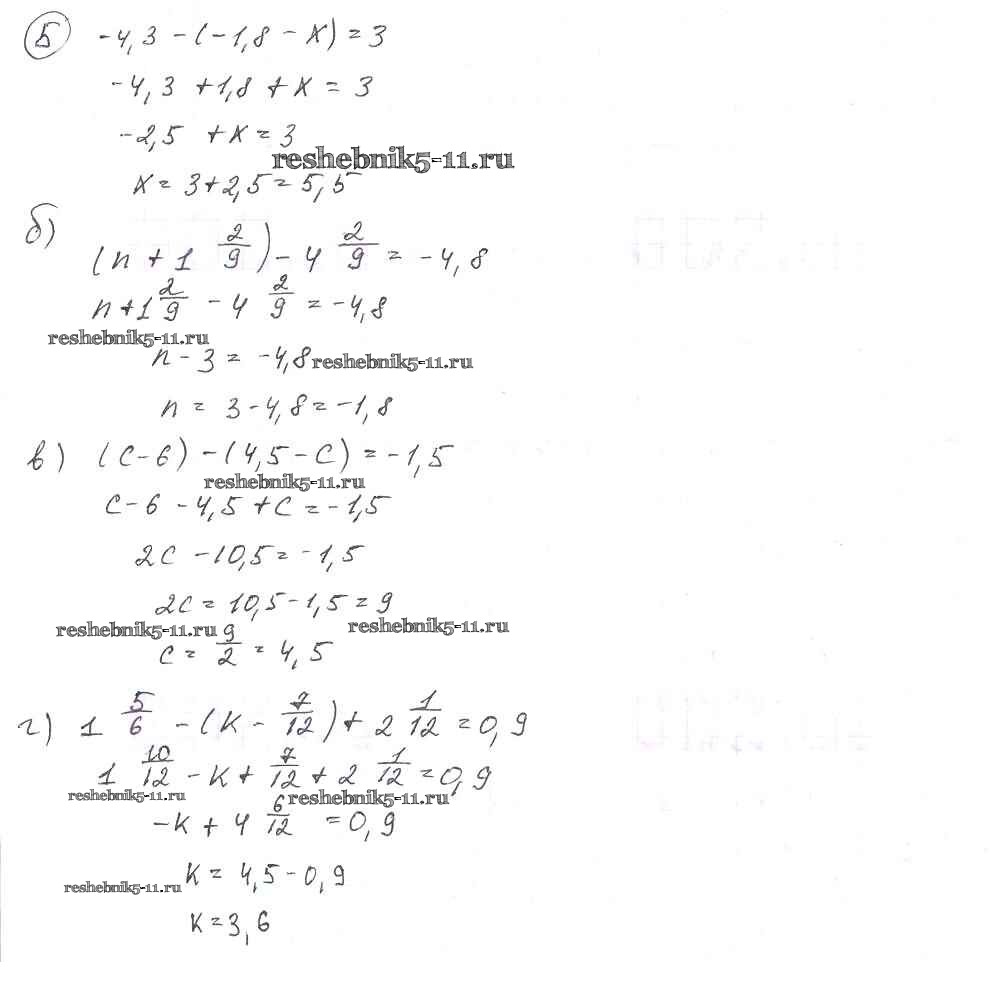 5 -4,3 - (-1,8 - x) = 3
-4,3 + 1,8 + x = 3
-2,5 + x = 3
reshebnik5-11.ru
x = 3 + 2,5 = 5,5
б) (n + 1 2/9) - 4 2/9 = -4,8
n + 1 2/9 - 4 2/9 = -4,8
reshebnik5-11.ru
n - 3 = -4,8 reshebnik5-11.ru
n = 3 - 4,8 = -1,8
в) (c - 6) - (4,5 - c) = -1,5
reshebnik5-11.ru
c - 6 - 4,5 + c = -1,5
2c - 10,5 = -1,5
2c = 10,5 - 1,5 = 9
reshebnik5-11.ru reshebnik5-11.ru
c = 9/2 = 4,5
г) 1 5/6 - (k - 7/12) + 2 1/12 = 0,9
1 10/12 - k + 7/12 + 2 1/12 = 0,9
reshebnik5-11.ru reshebnik5-11.ru
-k + 4 6/12 = 0,9
k = 4,5 - 0,9
reshebnik5-11.ru
k = 3,6